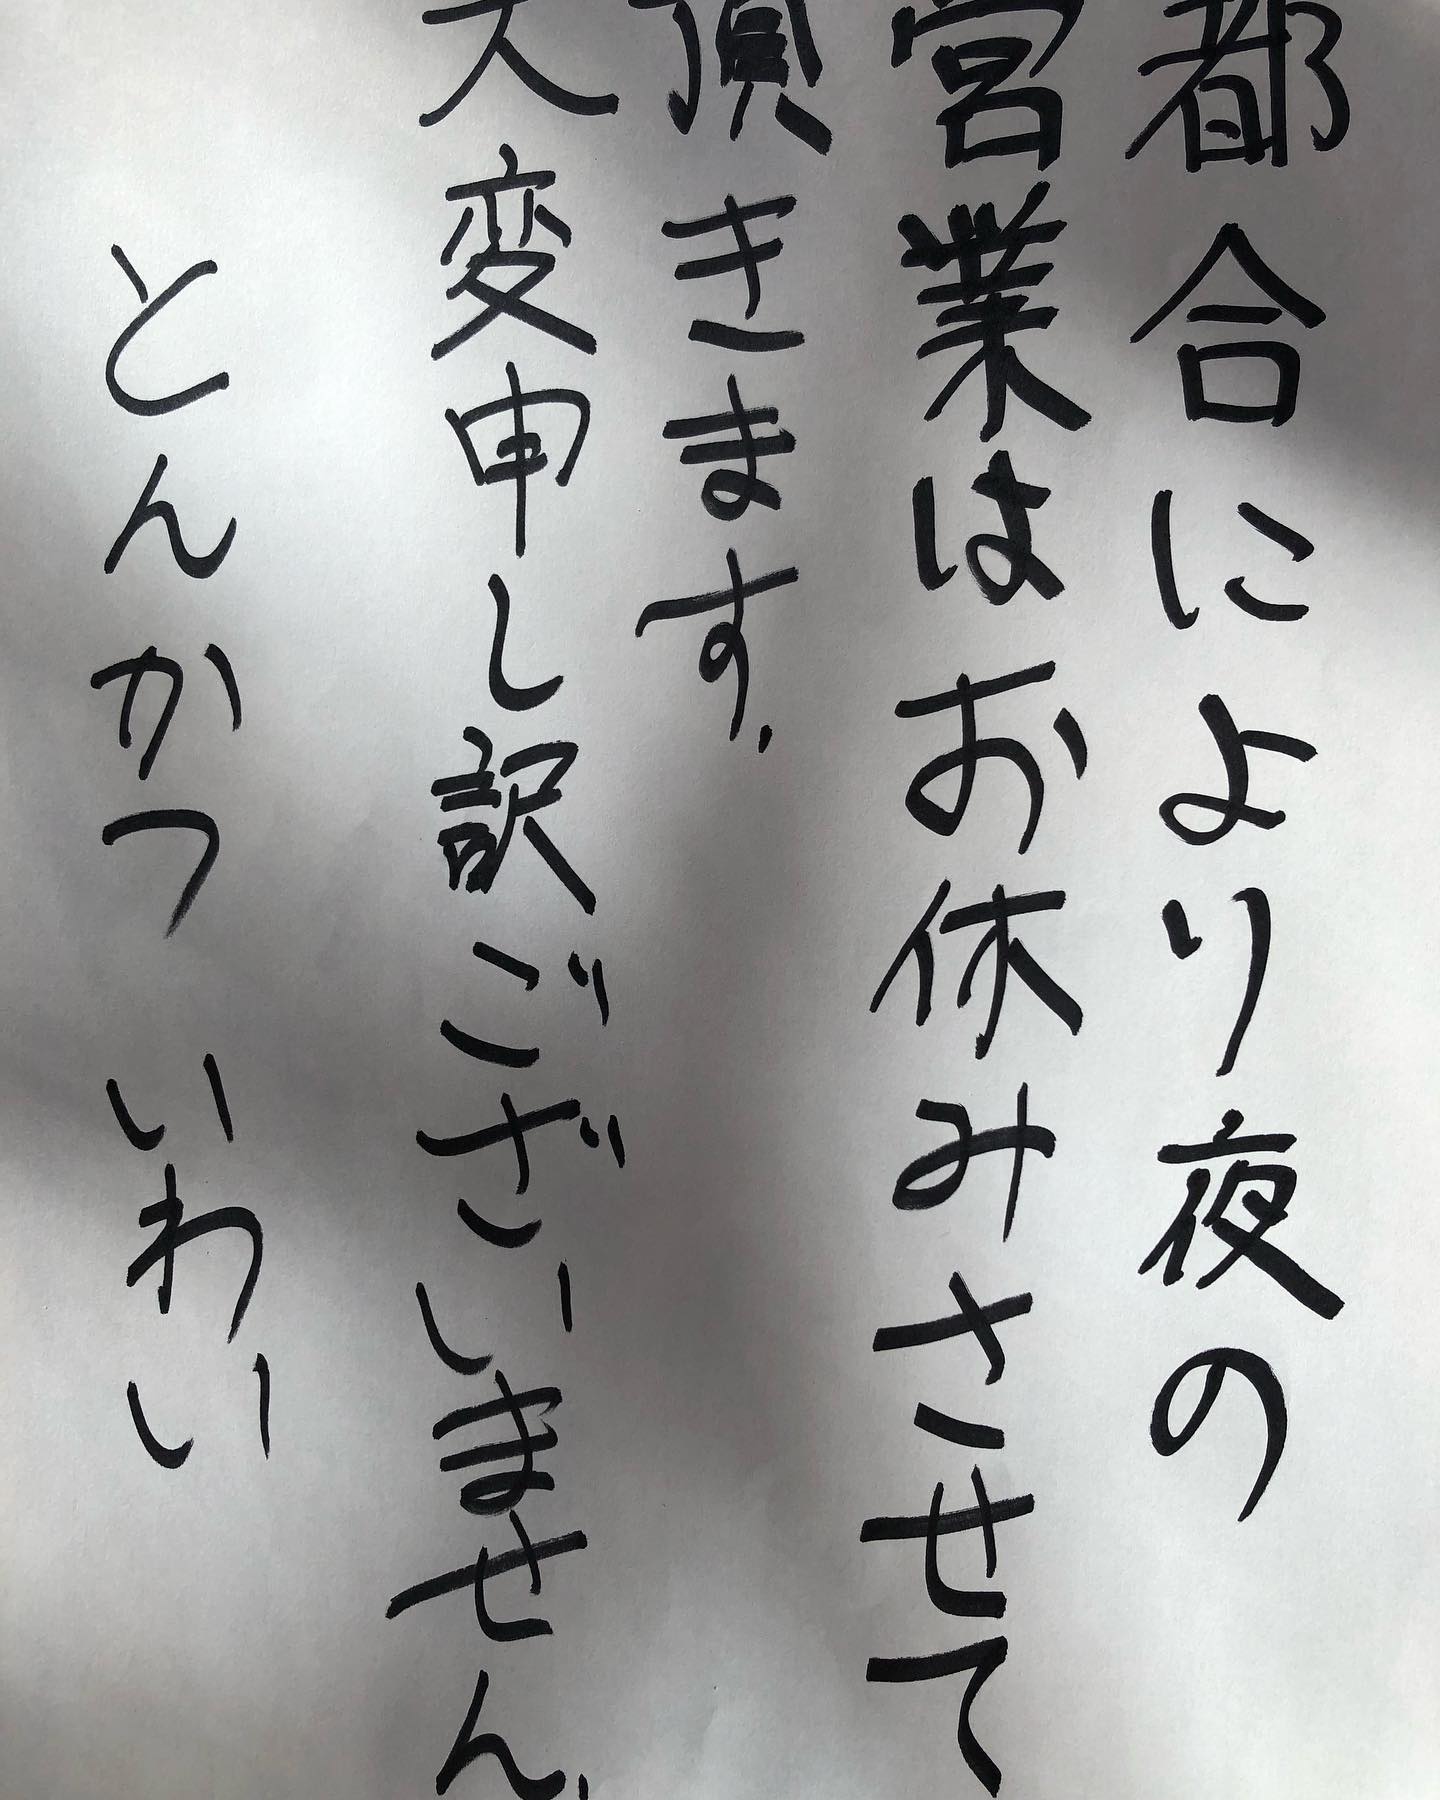 都合により夜の
営業はお休みさせて
頂きます、
大変申し訳ございません、
とんかつ いわい